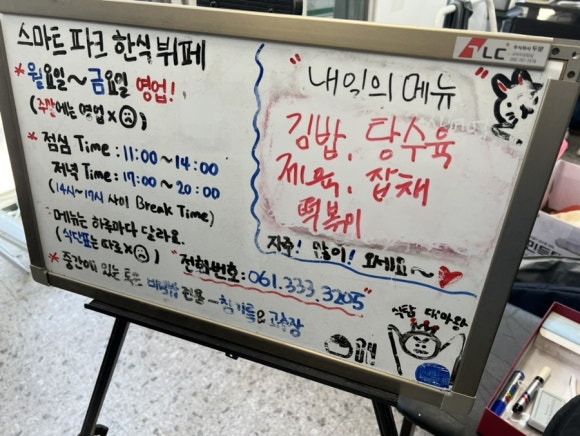 스마트 파크 한식 뷔페
* 월요일~금요일 영업!
(주말에는 영업 X)
* 점심 Time : 11:00 ~ 14:00
저녁 Time : 17:00 ~ 20:00
(14시~17시 사이 Break Time)
메뉴는 하루마다 달라요.
(식단표는 따로 X)
* 중간에 있는 비빔밥 참기름 & 고추장
"전화번호 : 061.333.3205"
"내일의 메뉴"
김밥, 탕수육
제육, 잡채
떡볶이
자주! 많이! 오세요~
식탐 대마왕
LC